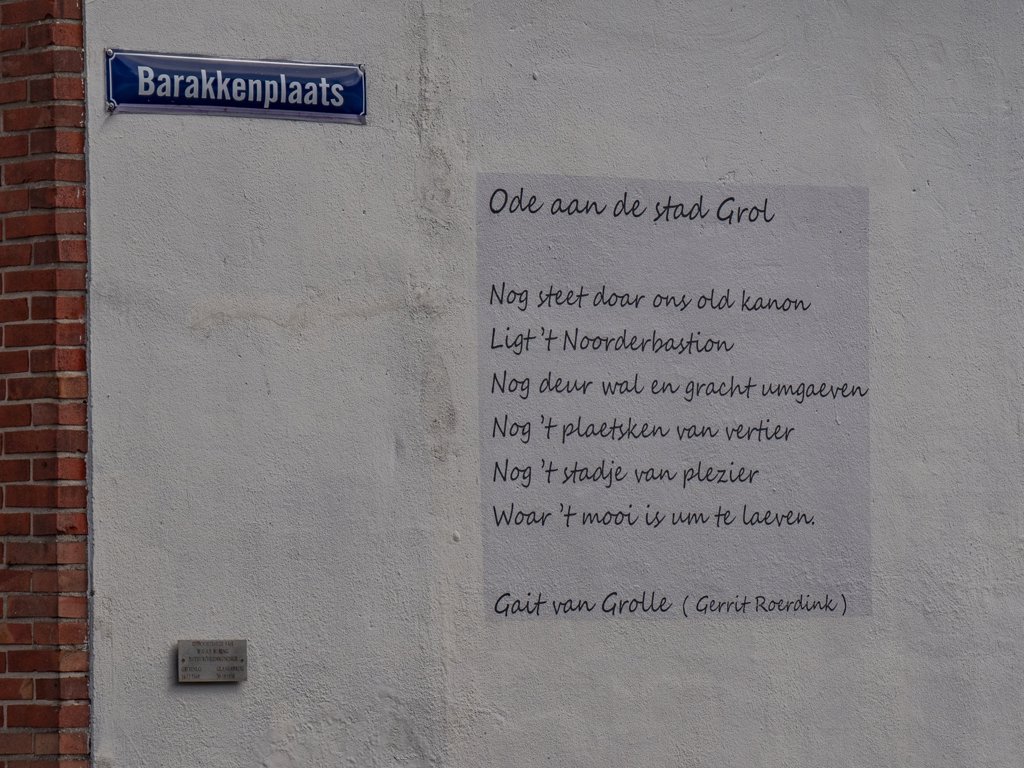 Barakkenplaats
Ode aan de stad Grol
Nog steet doar ons old kanon
Ligt 't Noorderbastion
Nog deur wal en gracht umgaeven
Nog 't plaetsken van vertier
Nog 't stadje van plezier
Woar 't mooi is um te laeven.
Gait van Grolle ( Gerrit Roerdink )